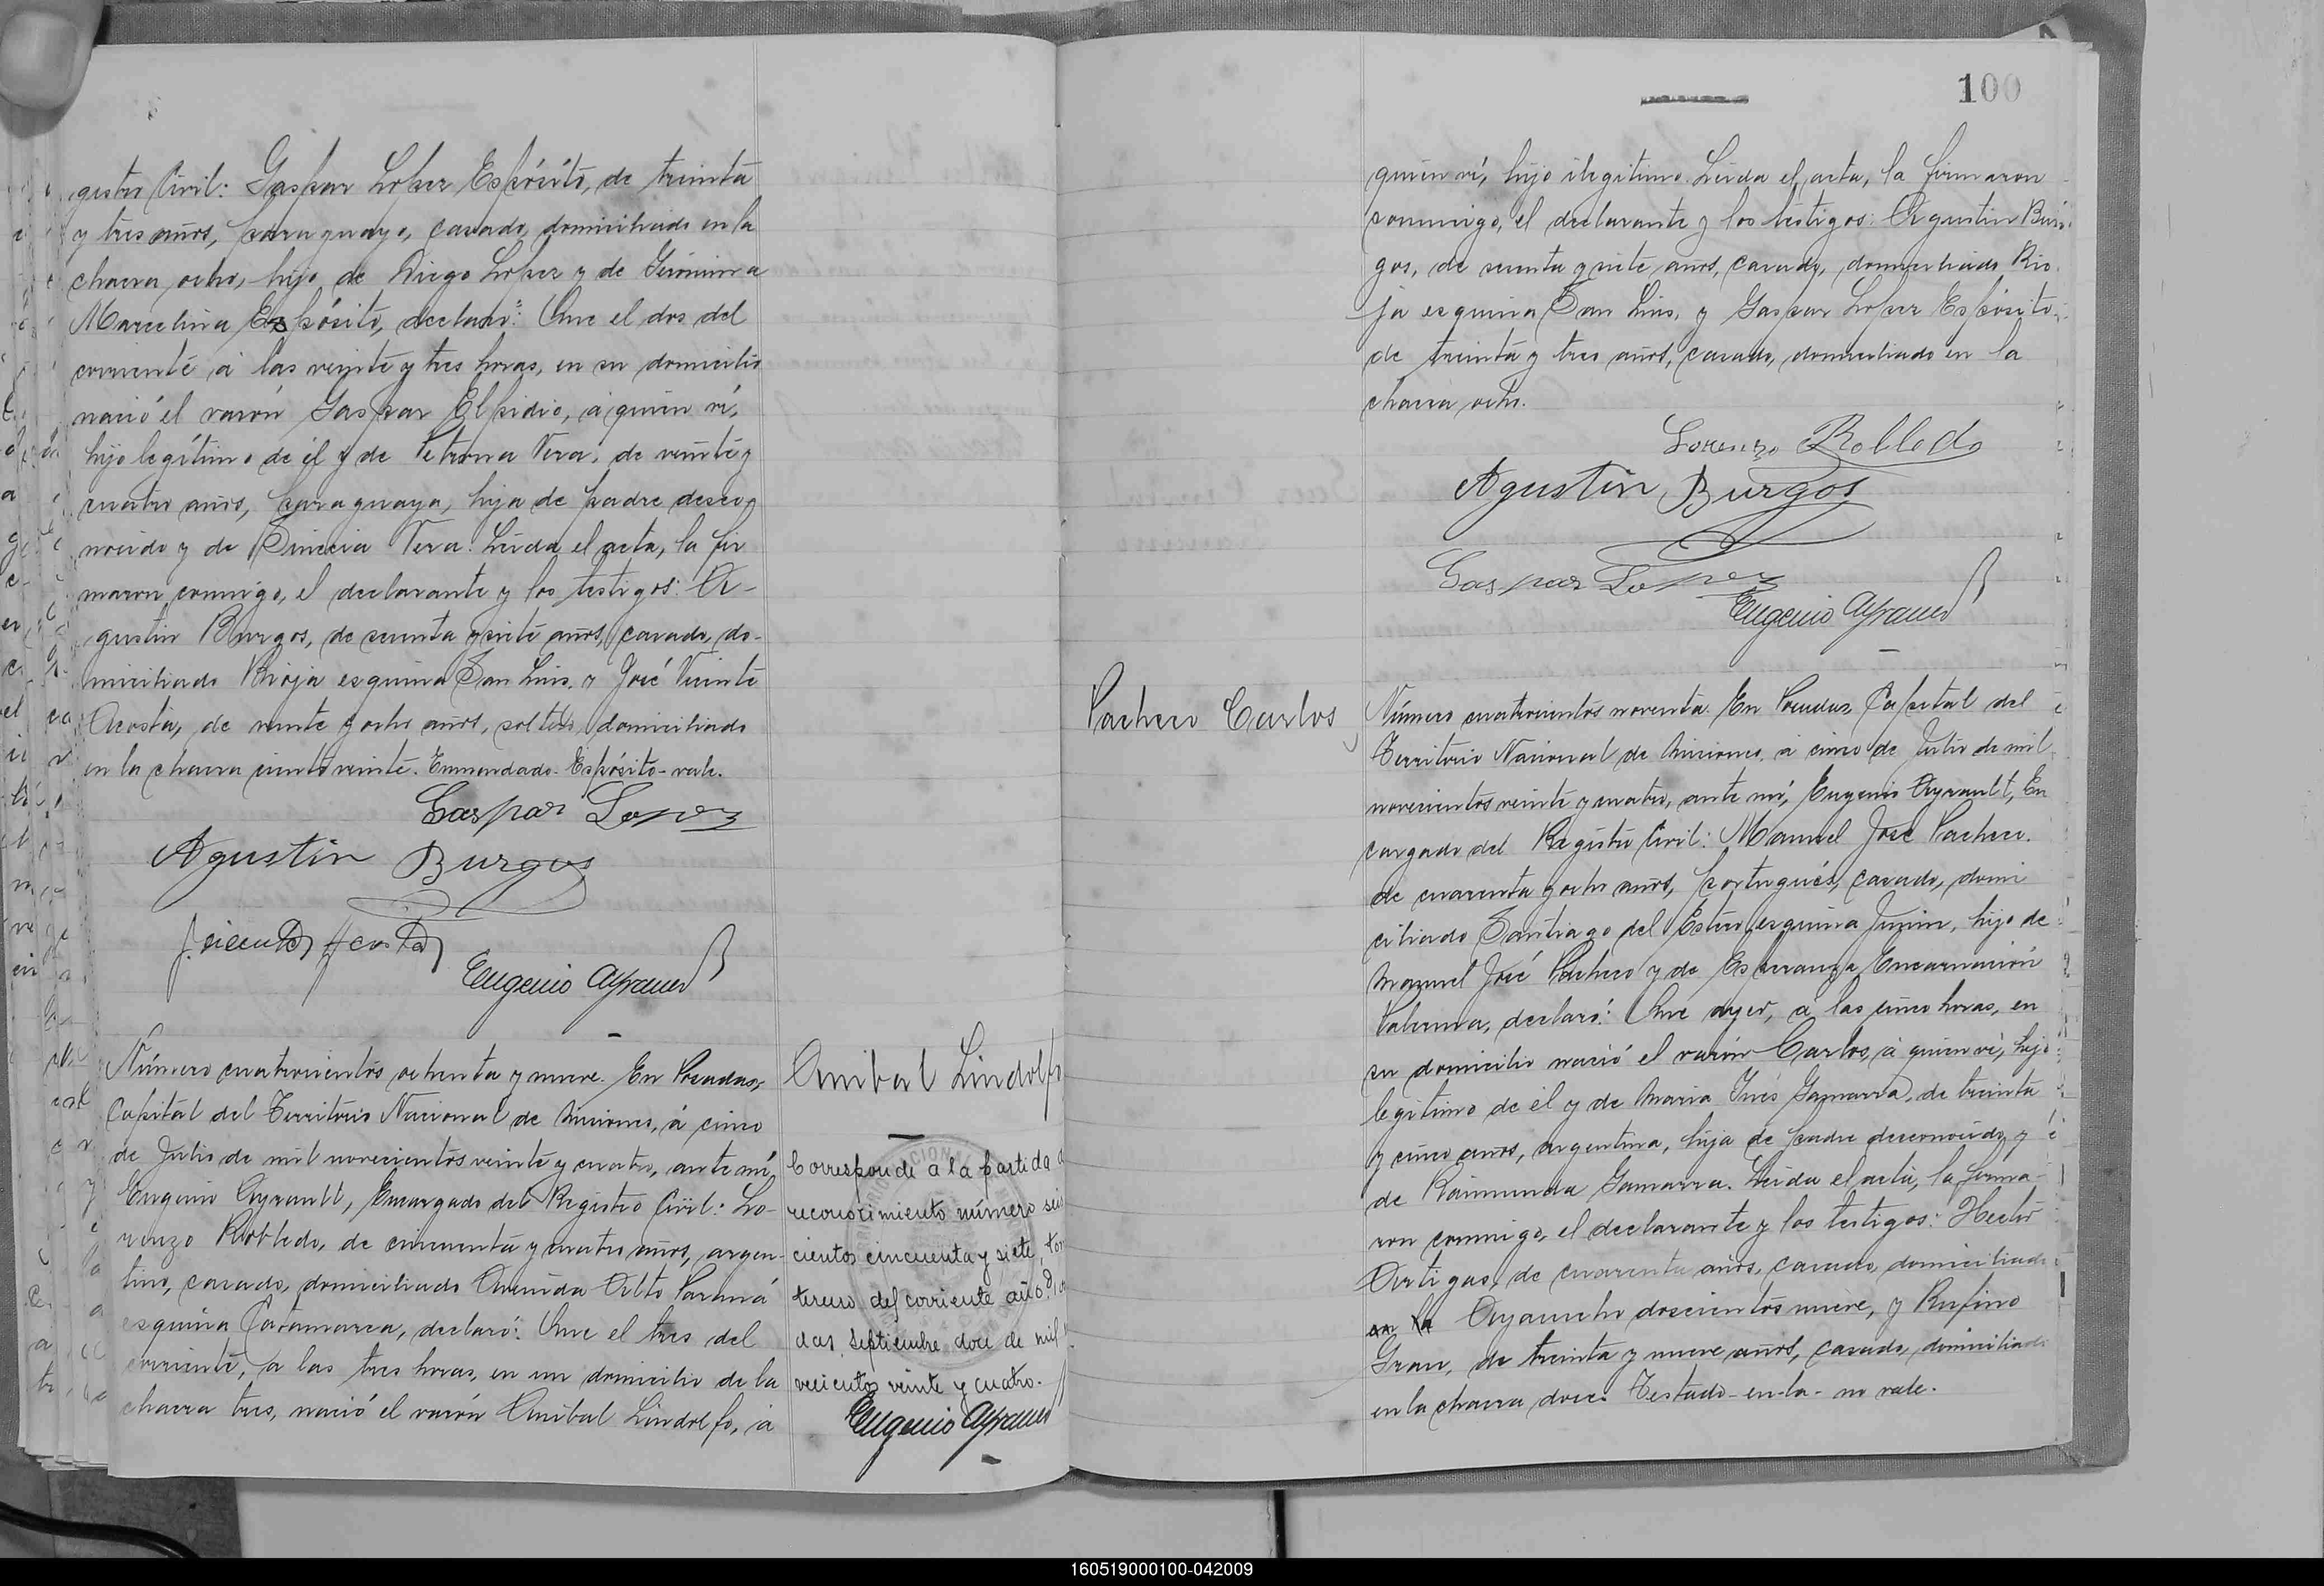 gistro Civil: Gaspar Lopez Expósito, de treinta
y tres años, paraguayo, casado, domiciliado en la
chacra ocho, hijo de Diego Lopez y de Gerónima
Marcelina Expósito, declaró: Que el dos del
corriente á las veinte y tres horas, en su domicilio
nació el varón Gaspar Elpidio, á quien ví,
hijo legítimo de él y de Petrona Vera, de veinte y
cuatro años, paraguaya, hija de padre desco
nocido y de Vera. Leída el acta, la fir
maron conmigo, el declarante y los testigos: A-
gustin Burgos, de sesenta y siete años, casado, do-
miciliado Rioja esquina San Luis, y José Vicente
Acosta, de veinte y ocho años, soltero, domiciliado
en la chacra ciento veinte. Enmendado- Espósito- vale.
Gaspar Lopez
Agustin Burgos
J. Vicente Acosta
Eugenio Ayrault
Número cuatrocientos ochenta y nueve. En Posadas,
Capital del Territorio Nacional de Misiones, á cinco
de Julio de mil novecientos veinte y cuatro, ante mí,
Eugenio Ayrault, Encargado del Registro Civil: Lo-
renzo Robledo, de cincuenta y cuatro años, argen-
tino, casado, domiciliado Avenida Alto Paraná
esquina Catamarca, declaró: Que el tres del
corriente, a las tres horas, en un domicilio de la
chacra tres, nació el varón Anibal Lindolfo, á
Anibal Lindolfo
Corresponde a la partida d
reconocimiento número seis
cientos cincuenta y siete, tom
tercero del corriente año. Posa
das, Septiembre doce de mil
vecientos veinte y cuatro.
Eugenio Ayrault
100
quien ví, hijo ilegítimo. Leída el acta, la firmaron
conmigo, el declarante y los testigos: Agustin Bur-
gos, de sesenta y siete años, casado, domiciliado Rio-
ja esquina San Luis, y Gaspar Lopez Espósito
de treinta y tres años, casado, domiciliado en la
chacra ocho.
Lorenzo Robledo
Agustin Burgos
Gaspar Lopez
Eugenio Ayrault
Pacheco Carlos
Número cuatrocientos noventa. En Posadas, Capital del
Territorio Nacional de Misiones, á cinco de Julio de mil
novecientos veinte y cuatro, ante mí, Eugenio Ayrault, En
cargado del Registro Civil: Manuel José Pacheco.
de cuarenta y ocho años, portugués, casado, domi
ciliado Santiago del Estero esquina Junin, hijo de
Manuel José Pacheco y de Esperanza Encarnación
declaró: Que ayer, á las cinco horas, en
su domicilio nació el varón Carlos, á quien ví, hijo
legítimo de él y de Maria Inés Gamarra, de treinta
y cinco años, argentina, hija de padre desconocido y
de Raimunda Gamarra. Leída el acta, la firma-
ron conmigo, el declarante y los testigos: Hector
Artigas, de cuarenta años, casado, domiciliado
en la Ayacucho doscientos nueve, y Rufino
Grau, de treinta y nueve años, casado, domiciliado
en la chacra doce. Testado- en-la- no vale.
160519000100-042009